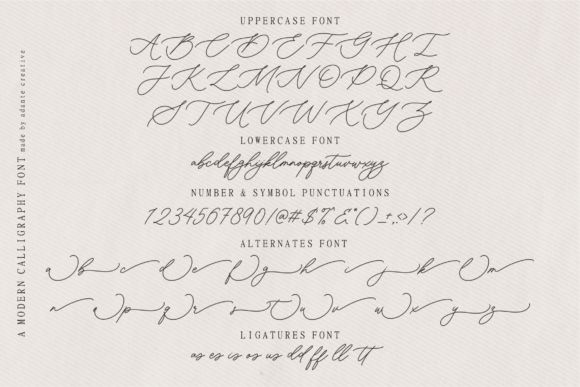 UPPERCASE FONT
ABCDEFGHI
JKLMNOPQR
STUVWXYZ
LOWERCASE FONT
abcdefghijklmnopqrstuvwxyz
NUMBER & SYMBOL PUNCTUATIONS
1234567890!@#$%&*()±,.<>/?
ALTERNATES FONT
a b c d e f g h i j k l m
n o p q r s t u v w x y z
LIGATURES FONT
as es is os us dd ff ll tt
A MODERN CALLIGRAPHY FONT made by adante creative